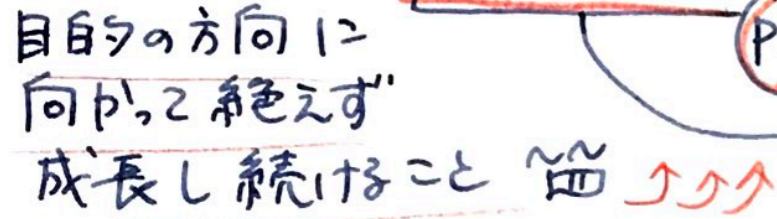 目的の方向に
向かって絶えず
成長し続けること
P